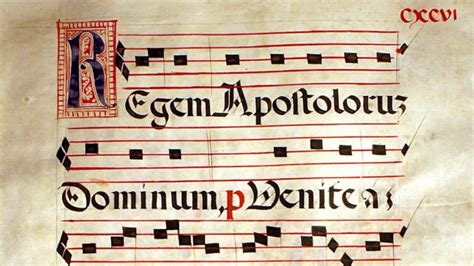 CXCVI
Regem Apostoloruz
Dominum, p Venite az